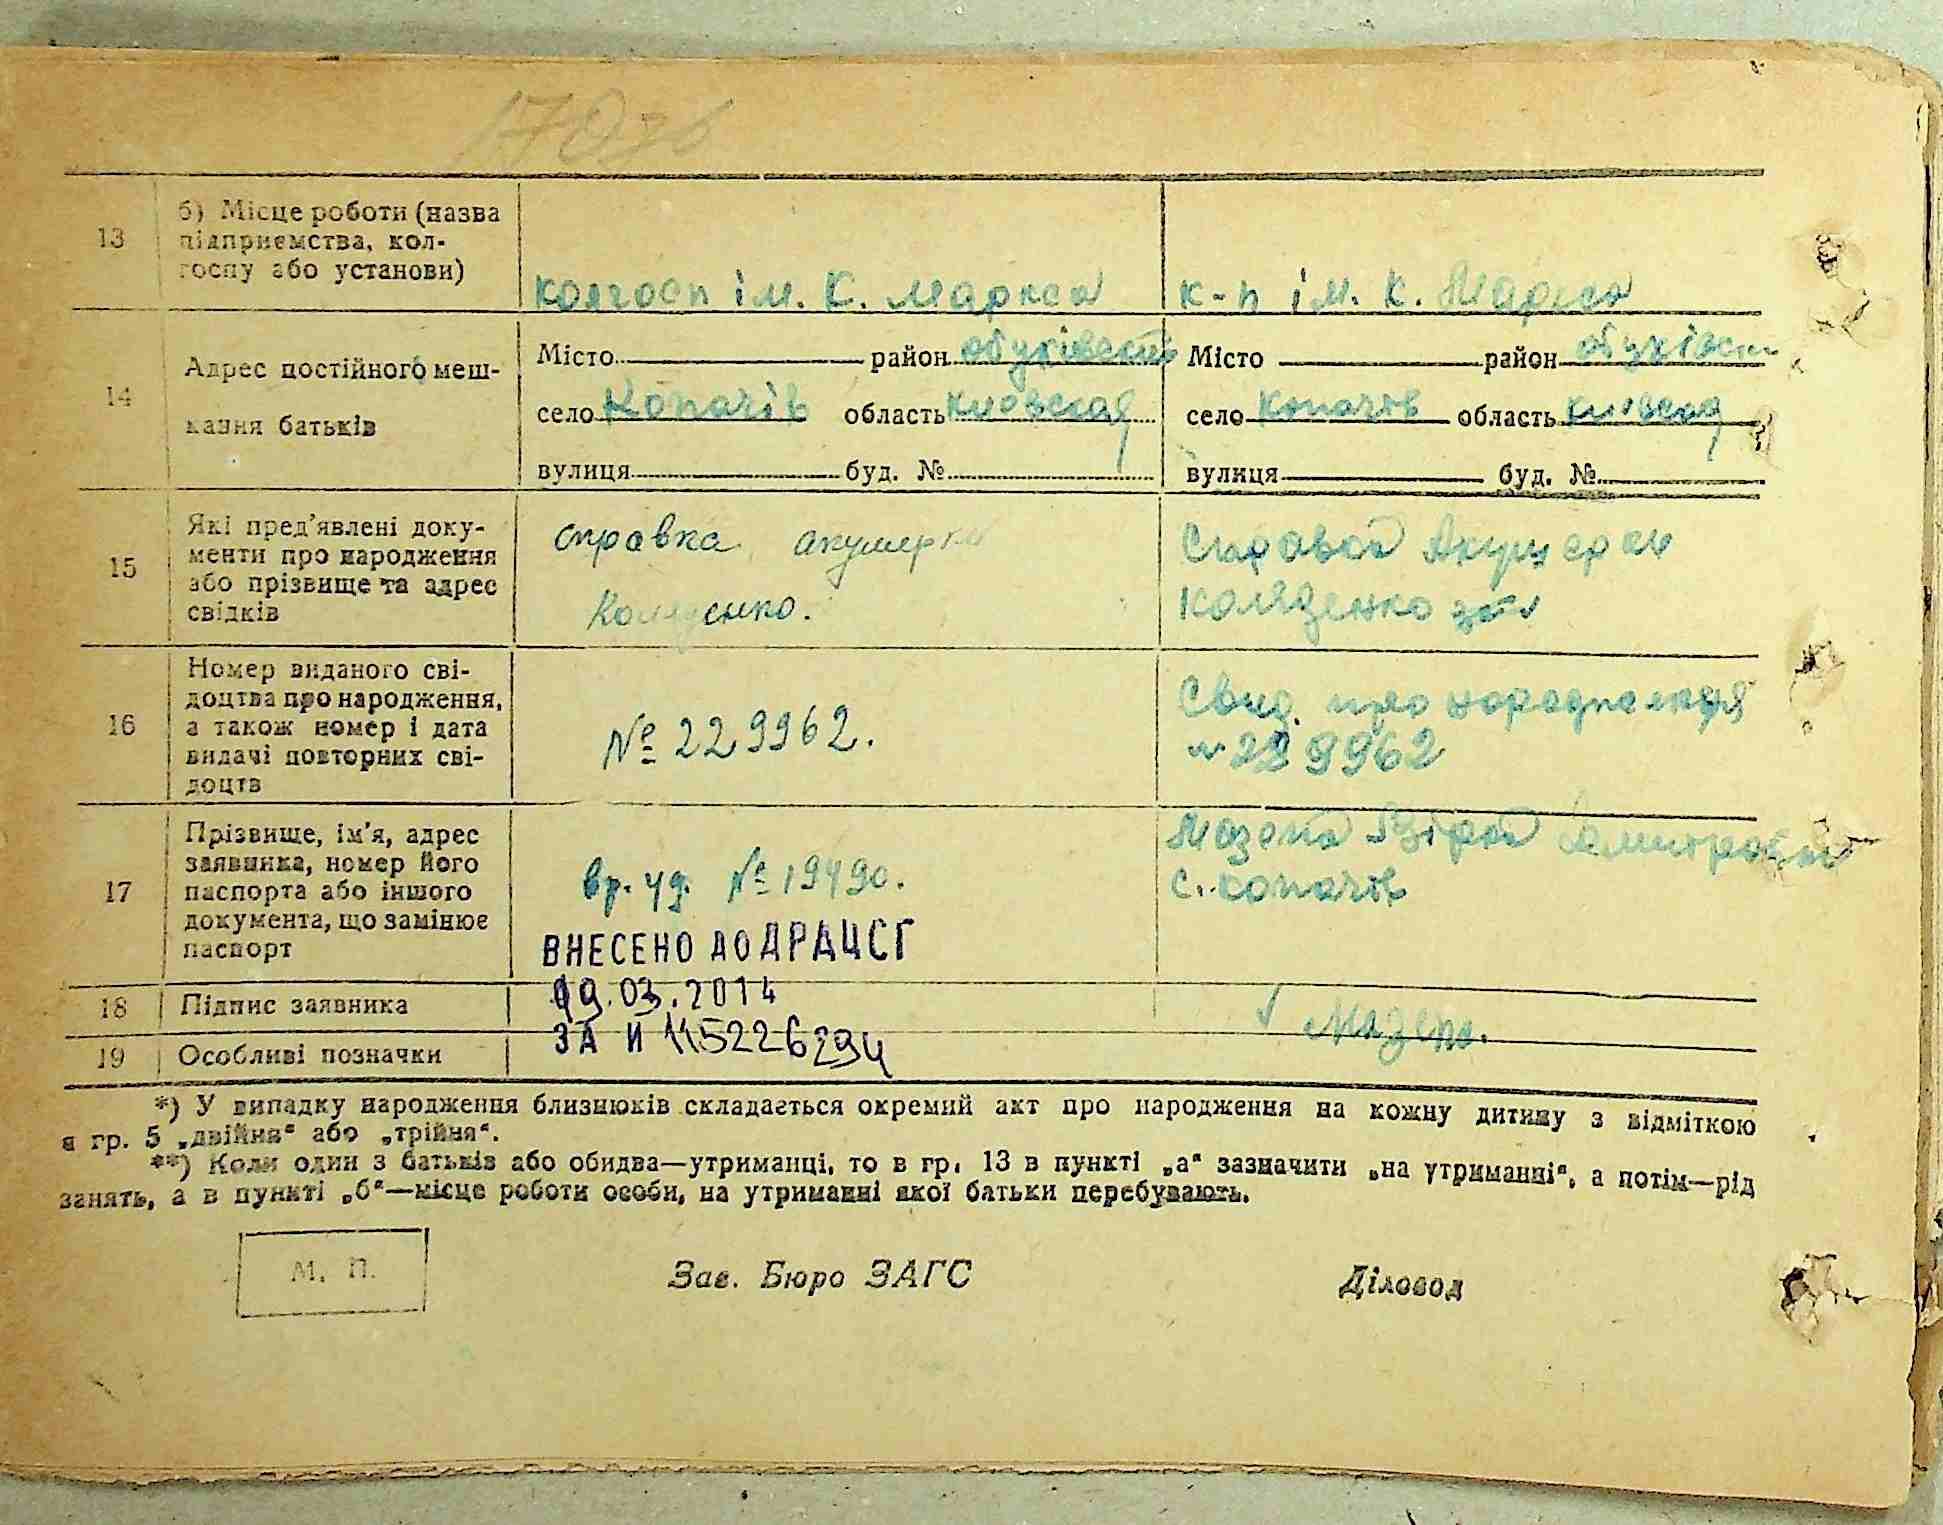 13
б) Місце роботи (назва
підприємства, кол-
госпу або установи)
колгосп ім. К. Маркса
к-п ім. К. Маркса
14
Адрес постійного меш-
кання батьків
Місто район обухівский
село Копачів область киевская
вулиця буд. №
Місто район обухівск
село Копачів область киевская
вулиця буд. №
15
Які пред'явлені доку-
менти про народження
або прізвище та адрес
свідків
справка акушерки
Справка Акушерки
Коляденко
16
Номер виданого сві-
доцтва про народження,
а також номер і дата
видачі повторних сві-
доцтв
№ 229962.
Свид. про народження
№ 229962
17
Прізвище, ім'я, адрес
заявника, номер його
паспорта або іншого
документа, що замінює
паспорт
вр. уд. № 19490.
Мазепа
с. Копачів
ВНЕСЕНО ДО ДРАЦСГ
19.03.2014
ЗА И 115226294
18
Підпис заявника
√ Мазепа.
19
Особливі позначки
*) У випадку народження близнюків складається окремий акт про народження на кожну дитину з відміткою
в гр. 5 „двійня“ або „трійня“.
**) Коли один з батьків або обидва—утриманці, то в гр. 13 в пункті „а“ зазначити „на утриманні“, а потім—рід
занять, а в пункті „б“—місце роботи особи, на утриманні якої батьки перебувають.
М. П.
Зав. Бюро ЗАГС
Діловод